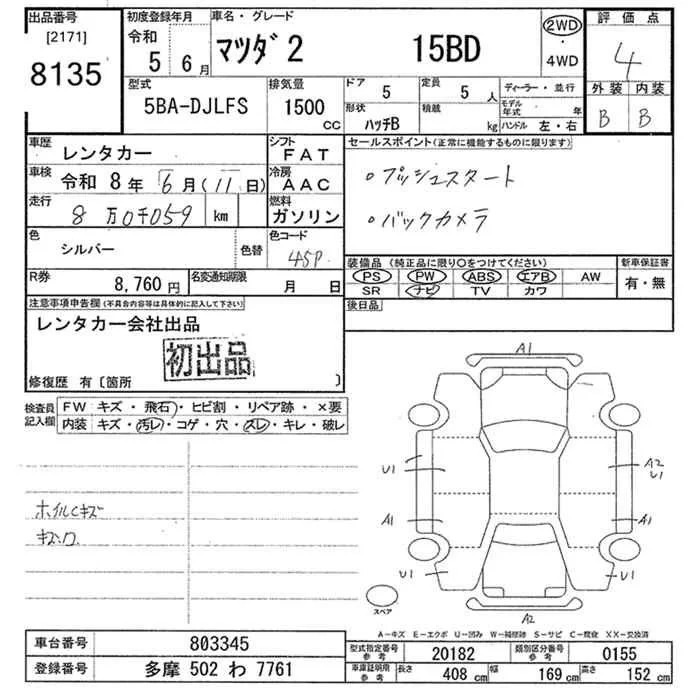 出品番号
[2171]
8135
初度登録年月
令和
5 6月
車名・グレード
マツダ2 15BD
2WD
・
4WD
評価点
4
外装 内装
B B
型式
5BA-DJLFS
排気量
1500
CC
ドア
5
定員
5 人
ディーラー・並行
形状
ハッチB
積載
kg
モデル年式 年
ハンドル 左・右
車歴
レンタカー
シフト
FAT
セールスポイント(正常に機能するものに限ります)
車検
令和 8年 6月(11日)
冷房
AAC
○プッシュスタート
走行
8万0千059 km
燃料
ガソリン
○バックカメラ
色
シルバー
色替
色コード
45P
装備品(純正品に限り○をつけてください)
新車保証書
PS PW ABS エアB AW
有・無
SR ナビ TV カワ
R券
8,760円
名変通知期限
月 日
後日品
注意事項申告欄(不具合内容等は具体的に記入して下さい)
レンタカー会社出品
初出品
修復歴 有〔箇所 〕
検査員記入欄
FW キズ・飛石・ヒビ割・リペア跡・×要
内装 キズ・汚レ・コゲ・穴・スレ・キレ・破レ
A1
U1
A2
U1
A1
A1
U1
U1
A2
ホイルCキズ
スペア
A-キズ E-エクボ U-凹み W-補修跡 S-サビ C-腐食 XX-交換済
車台番号
803345
型式指定番号
参考
20182
類別区分番号
参考
0155
登録番号
多摩 502 わ 7761
車庫証明用
参考
長さ
408 cm
幅
169 cm
高さ
152 cm